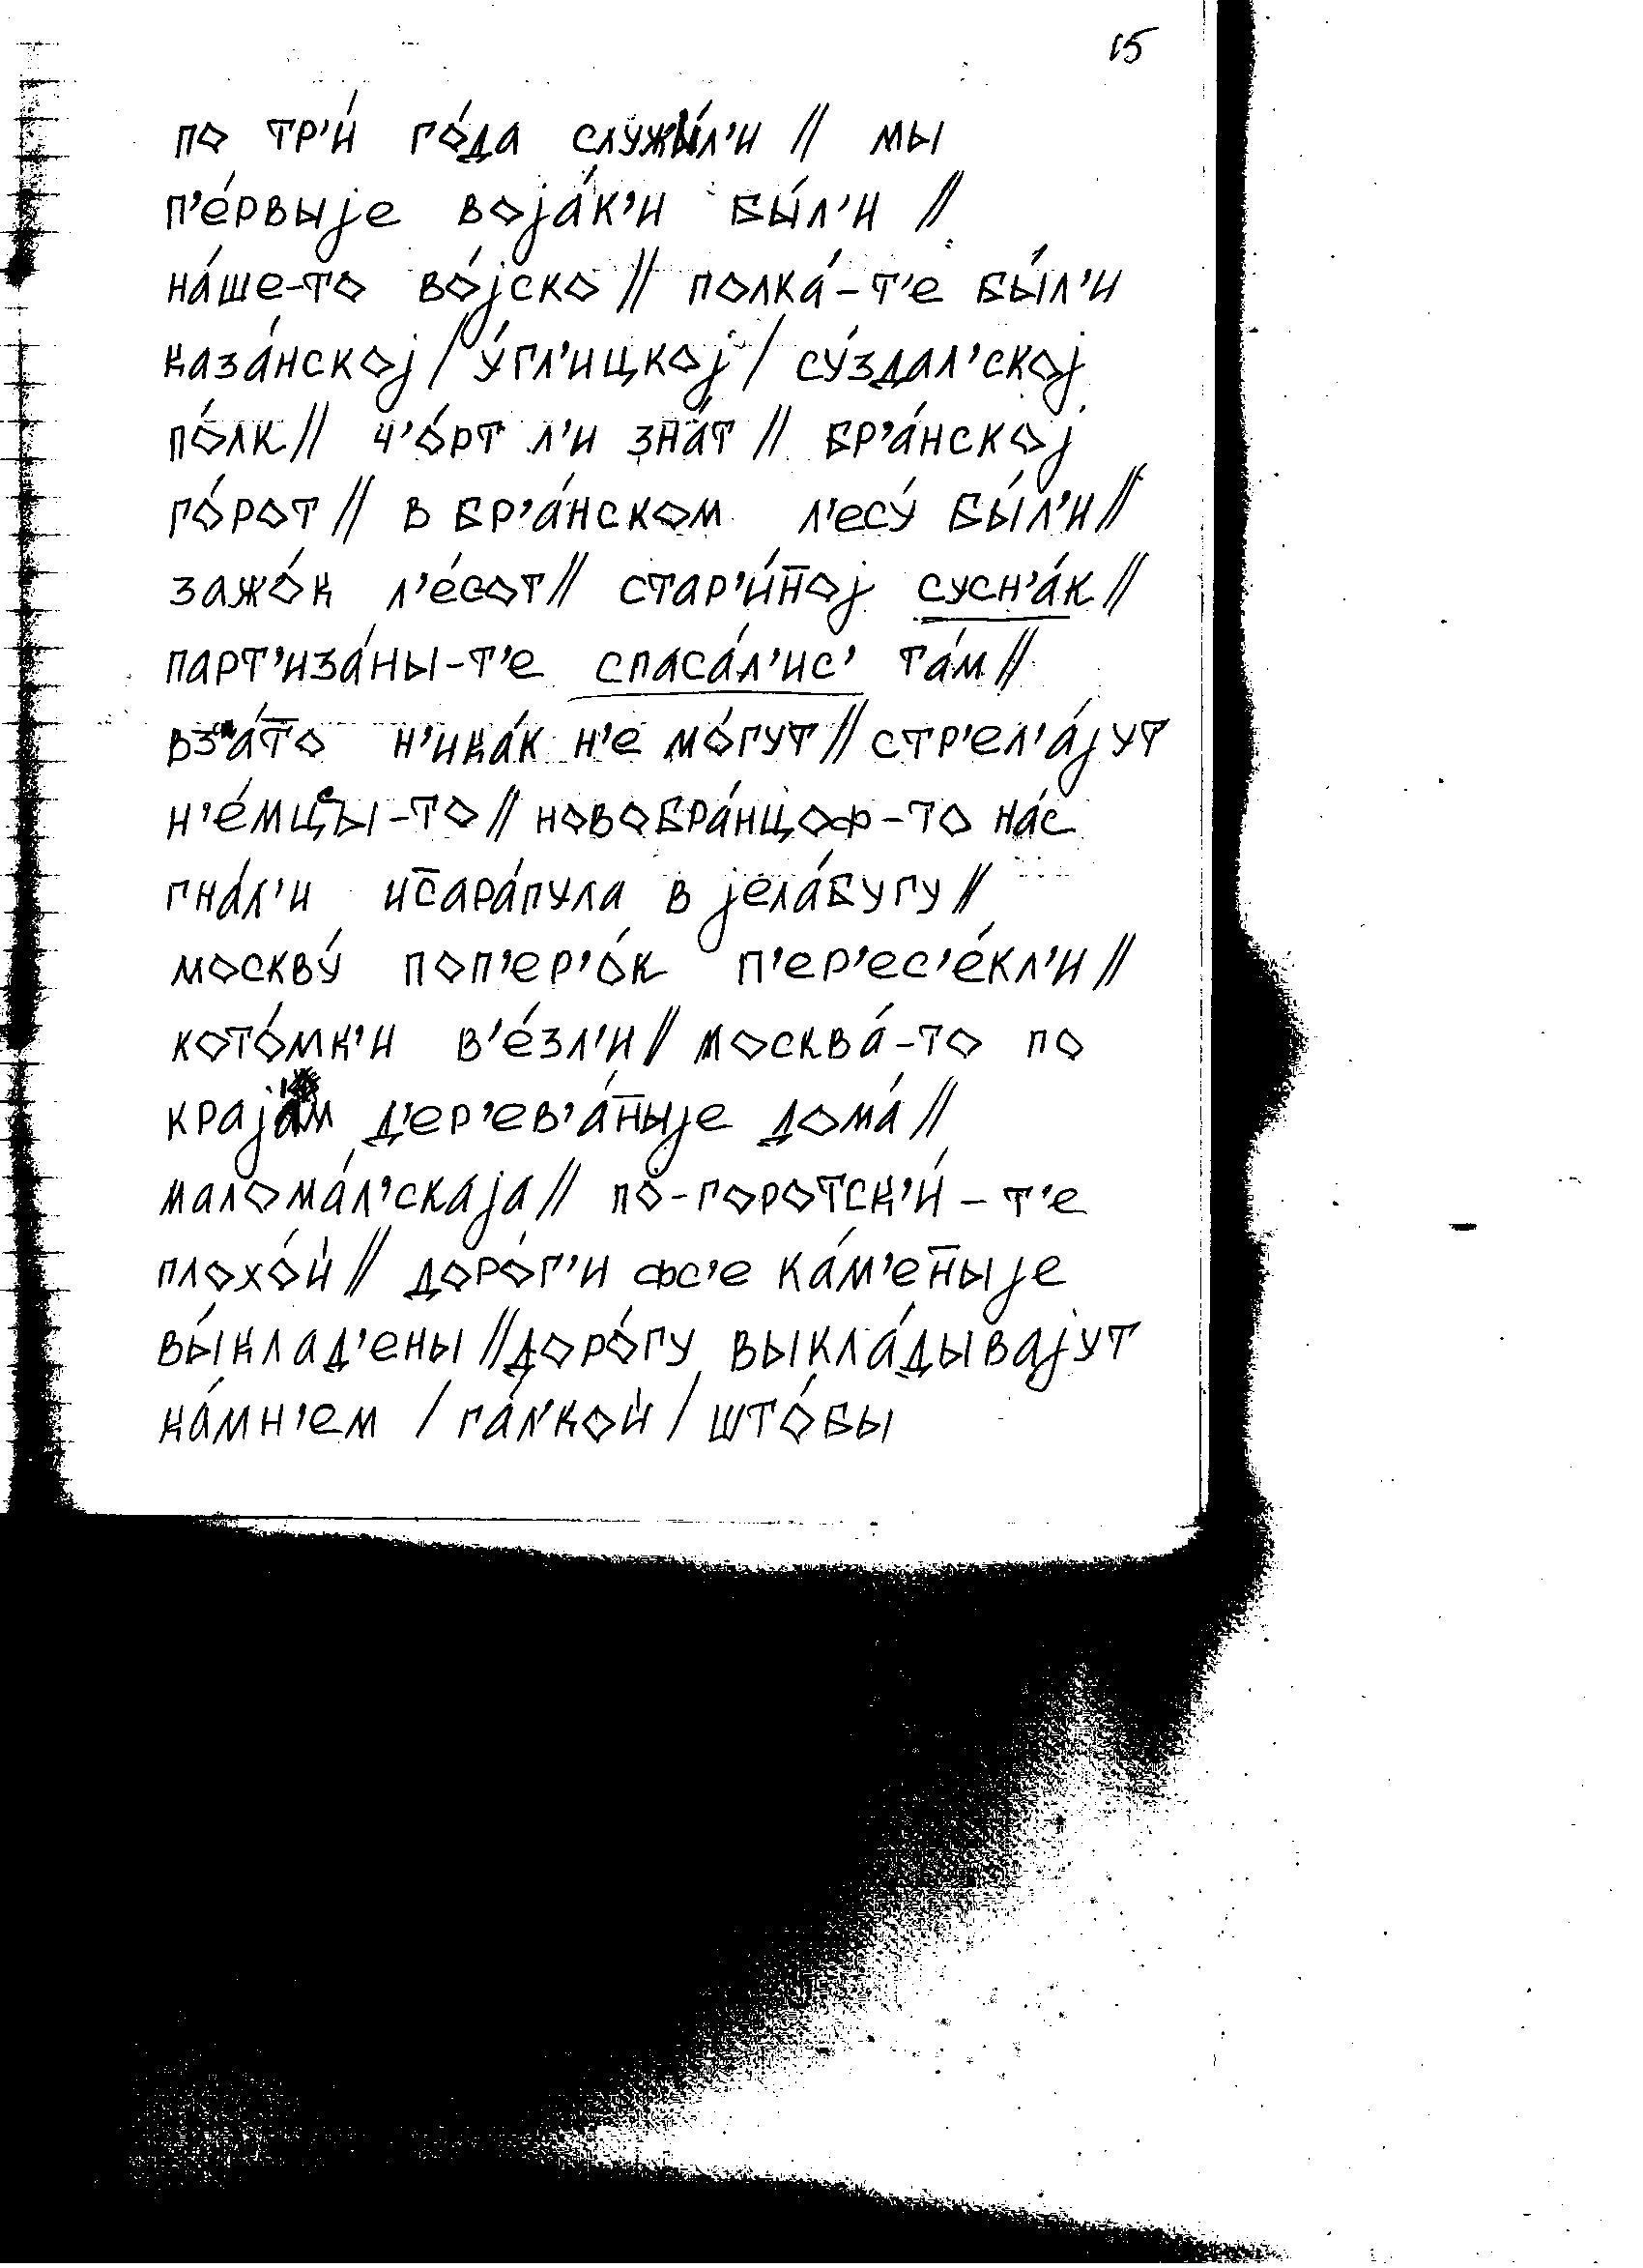 15
по тр'и́ го́да служы́л'и // мы
п'е́рвыjе воjа́к'и бы́л'и //
на́ше-то во́jско // полка́-т'е бы́л'и
каза́нскоj / у́гл'ицкоj / су́здал'скоj
по́лк // ч'о́рт л'и зна́т // бр'а́нскоj
го́рот // в бр'а́нском л'есу́ бы́л'и //
зажо́к л'е́сот // стар'и́н̄оj сусн'а́к //
парт'иза́ны-т'е спаса́л'ис' та́м //
вз'а́т̄о н'ика́к н'е мо́гут // стр'ел'а́jут
н'е́мцы-то // новобра́нцоф-то на́с
гна́л'и ис̄ара́пула в jела́бугу //
москву́ поп'ер'о́к п'ер'ес'е́кл'и //
кото́мк'и в'е́зл'и // москва́-то по
краjа́м д'ер'ев'а́н̄ыjе дома́ //
малома́л'скаjа // по-горотск'и́-т'е
плохо́й // доро́г'и фс'е ка́м'ен̄ыjе
вы́клад'ены // доро́гу выкла́дываjут
ка́мн'ем / га́л'кой / што́бы